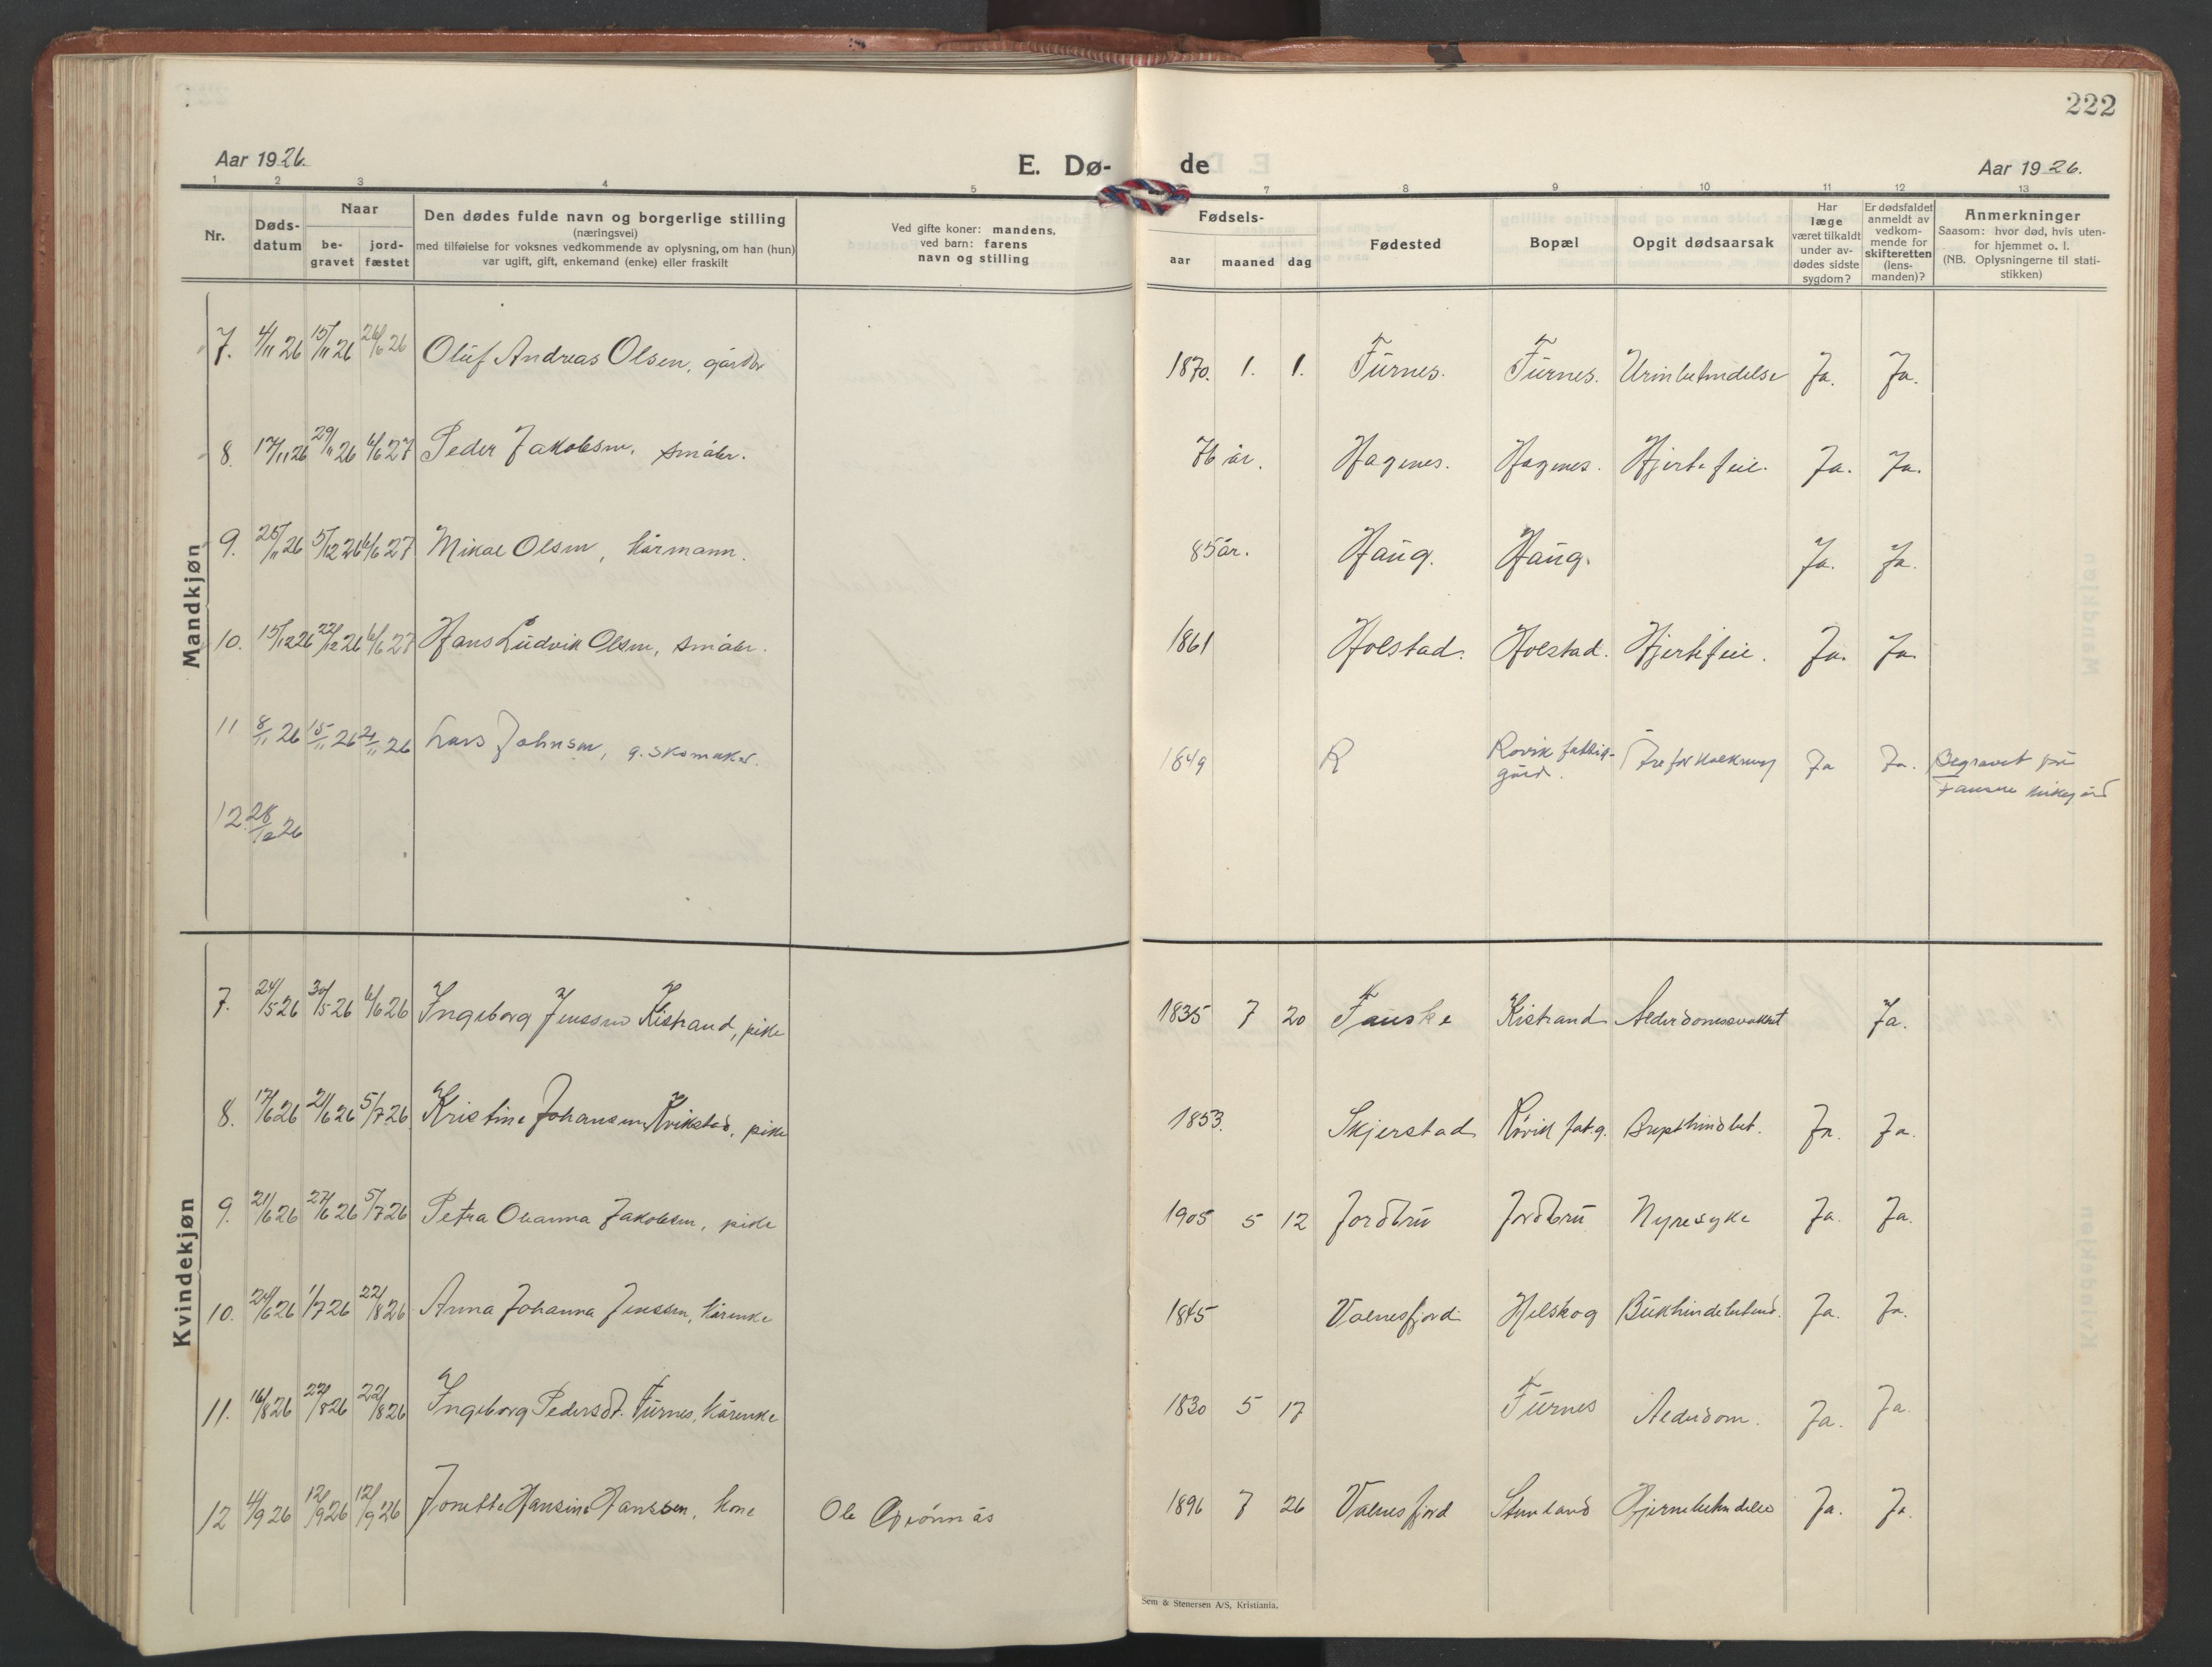 222
Aar 1926.
E. Dø-
de
Aar 1926.
1 2 3 4 5 7 8 9 10 11 12 13
Nr.
Døds-
datum
Naar
be-
gravet
jord-
fæstet
Den dødes fulde navn og borgerlige stilling
(næringsvei)
med tilføielse for voksnes vedkommende av oplysning, om han (hun)
var ugift, gift, enkemand (enke) eller fraskilt
Ved gifte koner: mandens,
ved barn: farens
navn og stilling
Fødsels-
aar maaned dag
Fødested
Bopæl
Opgit dødsaarsak
Har
læge
været tilkaldt
under av-
dødes sidste
sygdom?
Er dødsfaldet
anmeldt av
vedkom-
mende for
skifteretten
(lens-
manden)?
Anmerkninger
Saasom: hvor død, hvis uten-
for hjemmet o. l.
(NB. Oplysningerne til stati-
stikken)
Mandkjøn
7. 4/11 26 15/11 26 26/6 26 Oluf Andreas Olsen, gårdbr 1870. 1. 1. Furnes. Furnes. Urinbetendelse Ja. Ja.
8. 17/11 26 29/11 26 6/6 27 Peder Jakobsen. småbr. 76 år. Hagenes. Hagenes. Hjertefeil. Ja. Ja.
9. 25/11 26 5/12 26 6/6 27 Mikal Olsen, kårmann. 85 år. Haug. Haug. Ja. Ja.
10. 15/12 26 22/12 26 6/6 27 Hans Ludvik Olsen, småbr. 1861 Holstad. Holstad. Hjertefeil. Ja. Ja.
11 8/11 26 15/11 26 21/11 26 Lars Johnsen, g. skomaker. 1849 R Rovik fattig-
gård. Åreforkalkning Ja Ja. Begravet på
Fauske kirkegård
12. 28/12 26
Kvindekjøn
7. 24/5 26 30/5 26 6/6 26 Ingeborg Jenssen Kistrand, pike 1835 7 20 Fauske Kistrand Alderdomssvakhet Ja.
8. 17/6 26 21/6 26 5/7 26 Kristine Johansen Kvikstad, pike 1853. Skjerstad Røvik fat.g. Brysthindebet. Ja. Ja.
9. 21/6 26 27/6 26 5/7 26 Petra Oleanna Jakobsen, pike 1905 5 12 Jordbru Jordbru Nyresyke Ja. Ja.
10. 24/6 26 1/7 26 22/8 26 Anna Johanna Jenssen, kårenke 1845 Valnesfjord Helskog Bukhindebetend. Ja. Ja.
11. 16/8 26 22/8 26 22/8 26 Ingeborg Pedersdt. Furnes, kårenke 1830 5 17 Furnes Alderdom. Ja. Ja.
12 4/9 26 12/9 26 12/9 26 Jonette Hansine Hanssen, kone Ole Grønnås 1896 7 26 Valnesfjord Stemland Hjernebetendelse Ja. Ja.
Sem & Stenersen A/S, Kristiania.